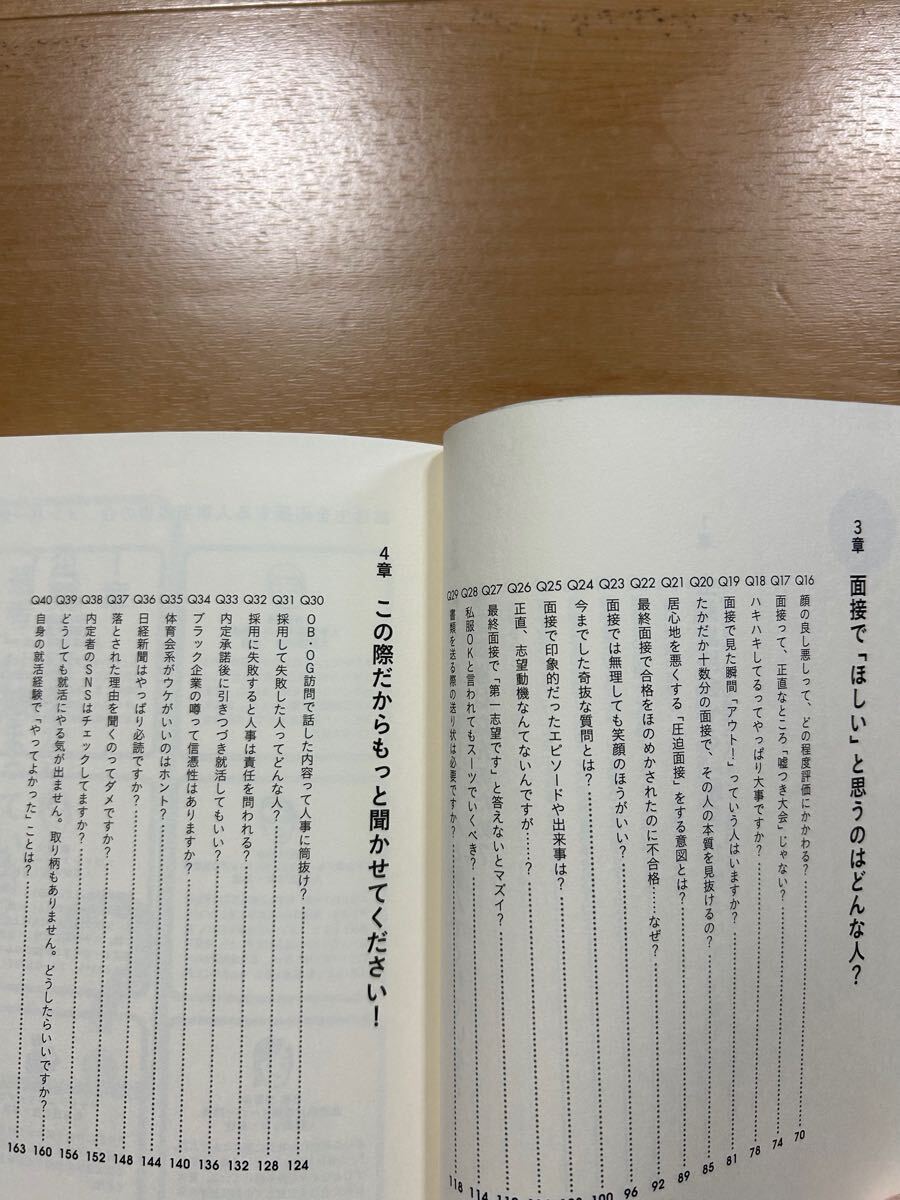 3章 面接で「ほしい」と思うのはどんな人？
Q16 顔の良し悪しって、どの程度評価にかかわる？ 70
Q17 面接って、正直なところ「嘘つき大会」じゃない？ 74
Q18 ハキハキしてるってやっぱり大事ですか？ 78
Q19 面接で見た瞬間「アウト！」っていう人はいますか？ 81
Q20 たかだか十数分の面接で、その人の本質を見抜けるの？ 85
Q21 居心地を悪くする「圧迫面接」をする意図とは？ 89
Q22 最終面接で合格をほのめかされたのに不合格……なぜ？ 92
Q23 面接では無理しても笑顔のほうがいい？ 96
Q24 今までした奇抜な質問とは？ 100
Q25 面接で印象的だったエピソードや出来事は？
Q26 正直、志望動機なんてないんですが……？
Q27 最終面接で「第一志望です」と答えないとマズイ？
Q28 私服OKと言われてもスーツでいくべき？ 114
Q29 書類を送る際の送り状は必要ですか？ 118
4章 この際だからもっと聞かせてください！
Q30 OB・OG訪問で話した内容って人事に筒抜け？ 124
Q31 採用して失敗した人ってどんな人？ 128
Q32 採用に失敗すると人事は責任を問われる？ 132
Q33 内定承諾後に引きつづき就活してもいい？ 136
Q34 ブラック企業の噂って信憑性はありますか？ 140
Q35 体育会系がウケがいいのはホント？ 144
Q36 日経新聞はやっぱり必読ですか？ 148
Q37 落とされた理由を聞くのってダメですか？ 152
Q38 内定者のSNSはチェックしてますか？ 156
Q39 どうしても就活にやる気が出ません。取り柄もありません。どうしたらいいですか？ 160
Q40 自身の就活経験で「やってよかった」ことは？ 163